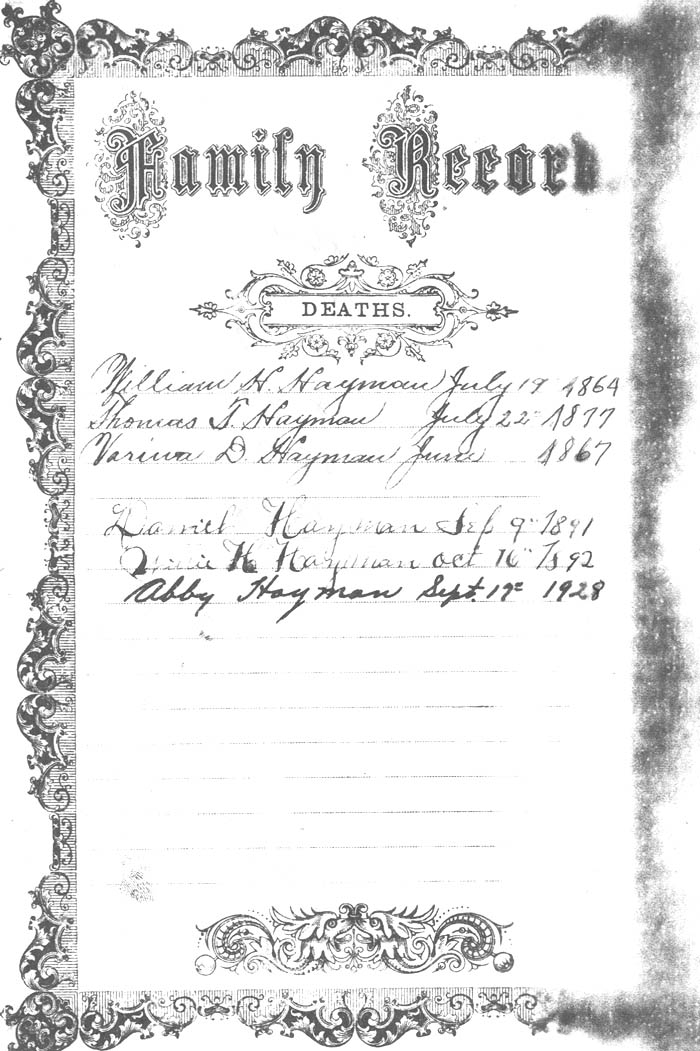 Family Record
DEATHS.
William H. Hayman July 19 1864
Thomas T. Hayman July 22 1877
Varina D. Hayman June 1867
Daniel Hayman Sep 9th 1891
H Hayman oct 16th 1892
Abby Hayman Sept. 17th 1928